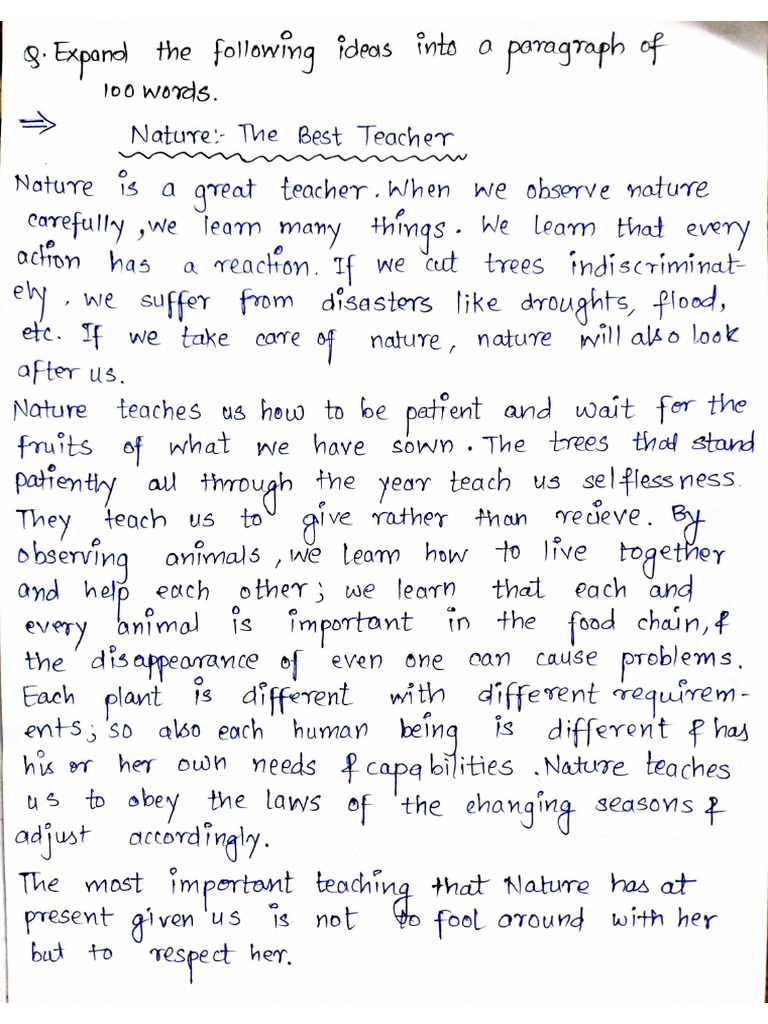 Q. Expand the following ideas into a paragraph of
100 words.
⇒ Nature:- The Best Teacher
Nature is a great teacher. When we observe nature
carefully, we learn many things. We learn that every
action has a reaction. If we cut trees indiscriminat-
ely, we suffer from disasters like droughts, flood,
etc. If we take care of nature, nature will also look
after us.
Nature teaches us how to be patient and wait for the
fruits of what we have sown. The trees that stand
patiently all through the year teach us selflessness.
They teach us to give rather than recieve. By
observing animals, we learn how to live together
and help each other; we learn that each and
every animal is important in the food chain, &
the disappearance of even one can cause problems.
Each plant is different with different requirem-
ents; so also each human being is different & has
his or her own needs & capabilities. Nature teaches
us to obey the laws of the changing seasons &
adjust accordingly.
The most important teaching that Nature has at
present given us is not to fool around with her
but to respect her.